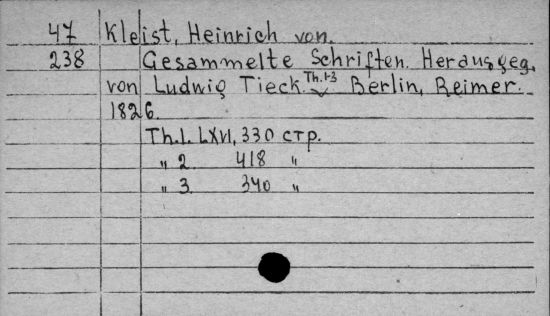 47 Kleist, Heinrich von.
238 Gesammelte Schriften. Herausgeg.
von Ludwig Tieck. Th. 1-3 Berlin, Reimer.
1826.
Th. 1. LXVI, 330 стр.
„ 2. 418 „
„ 3. 340 „